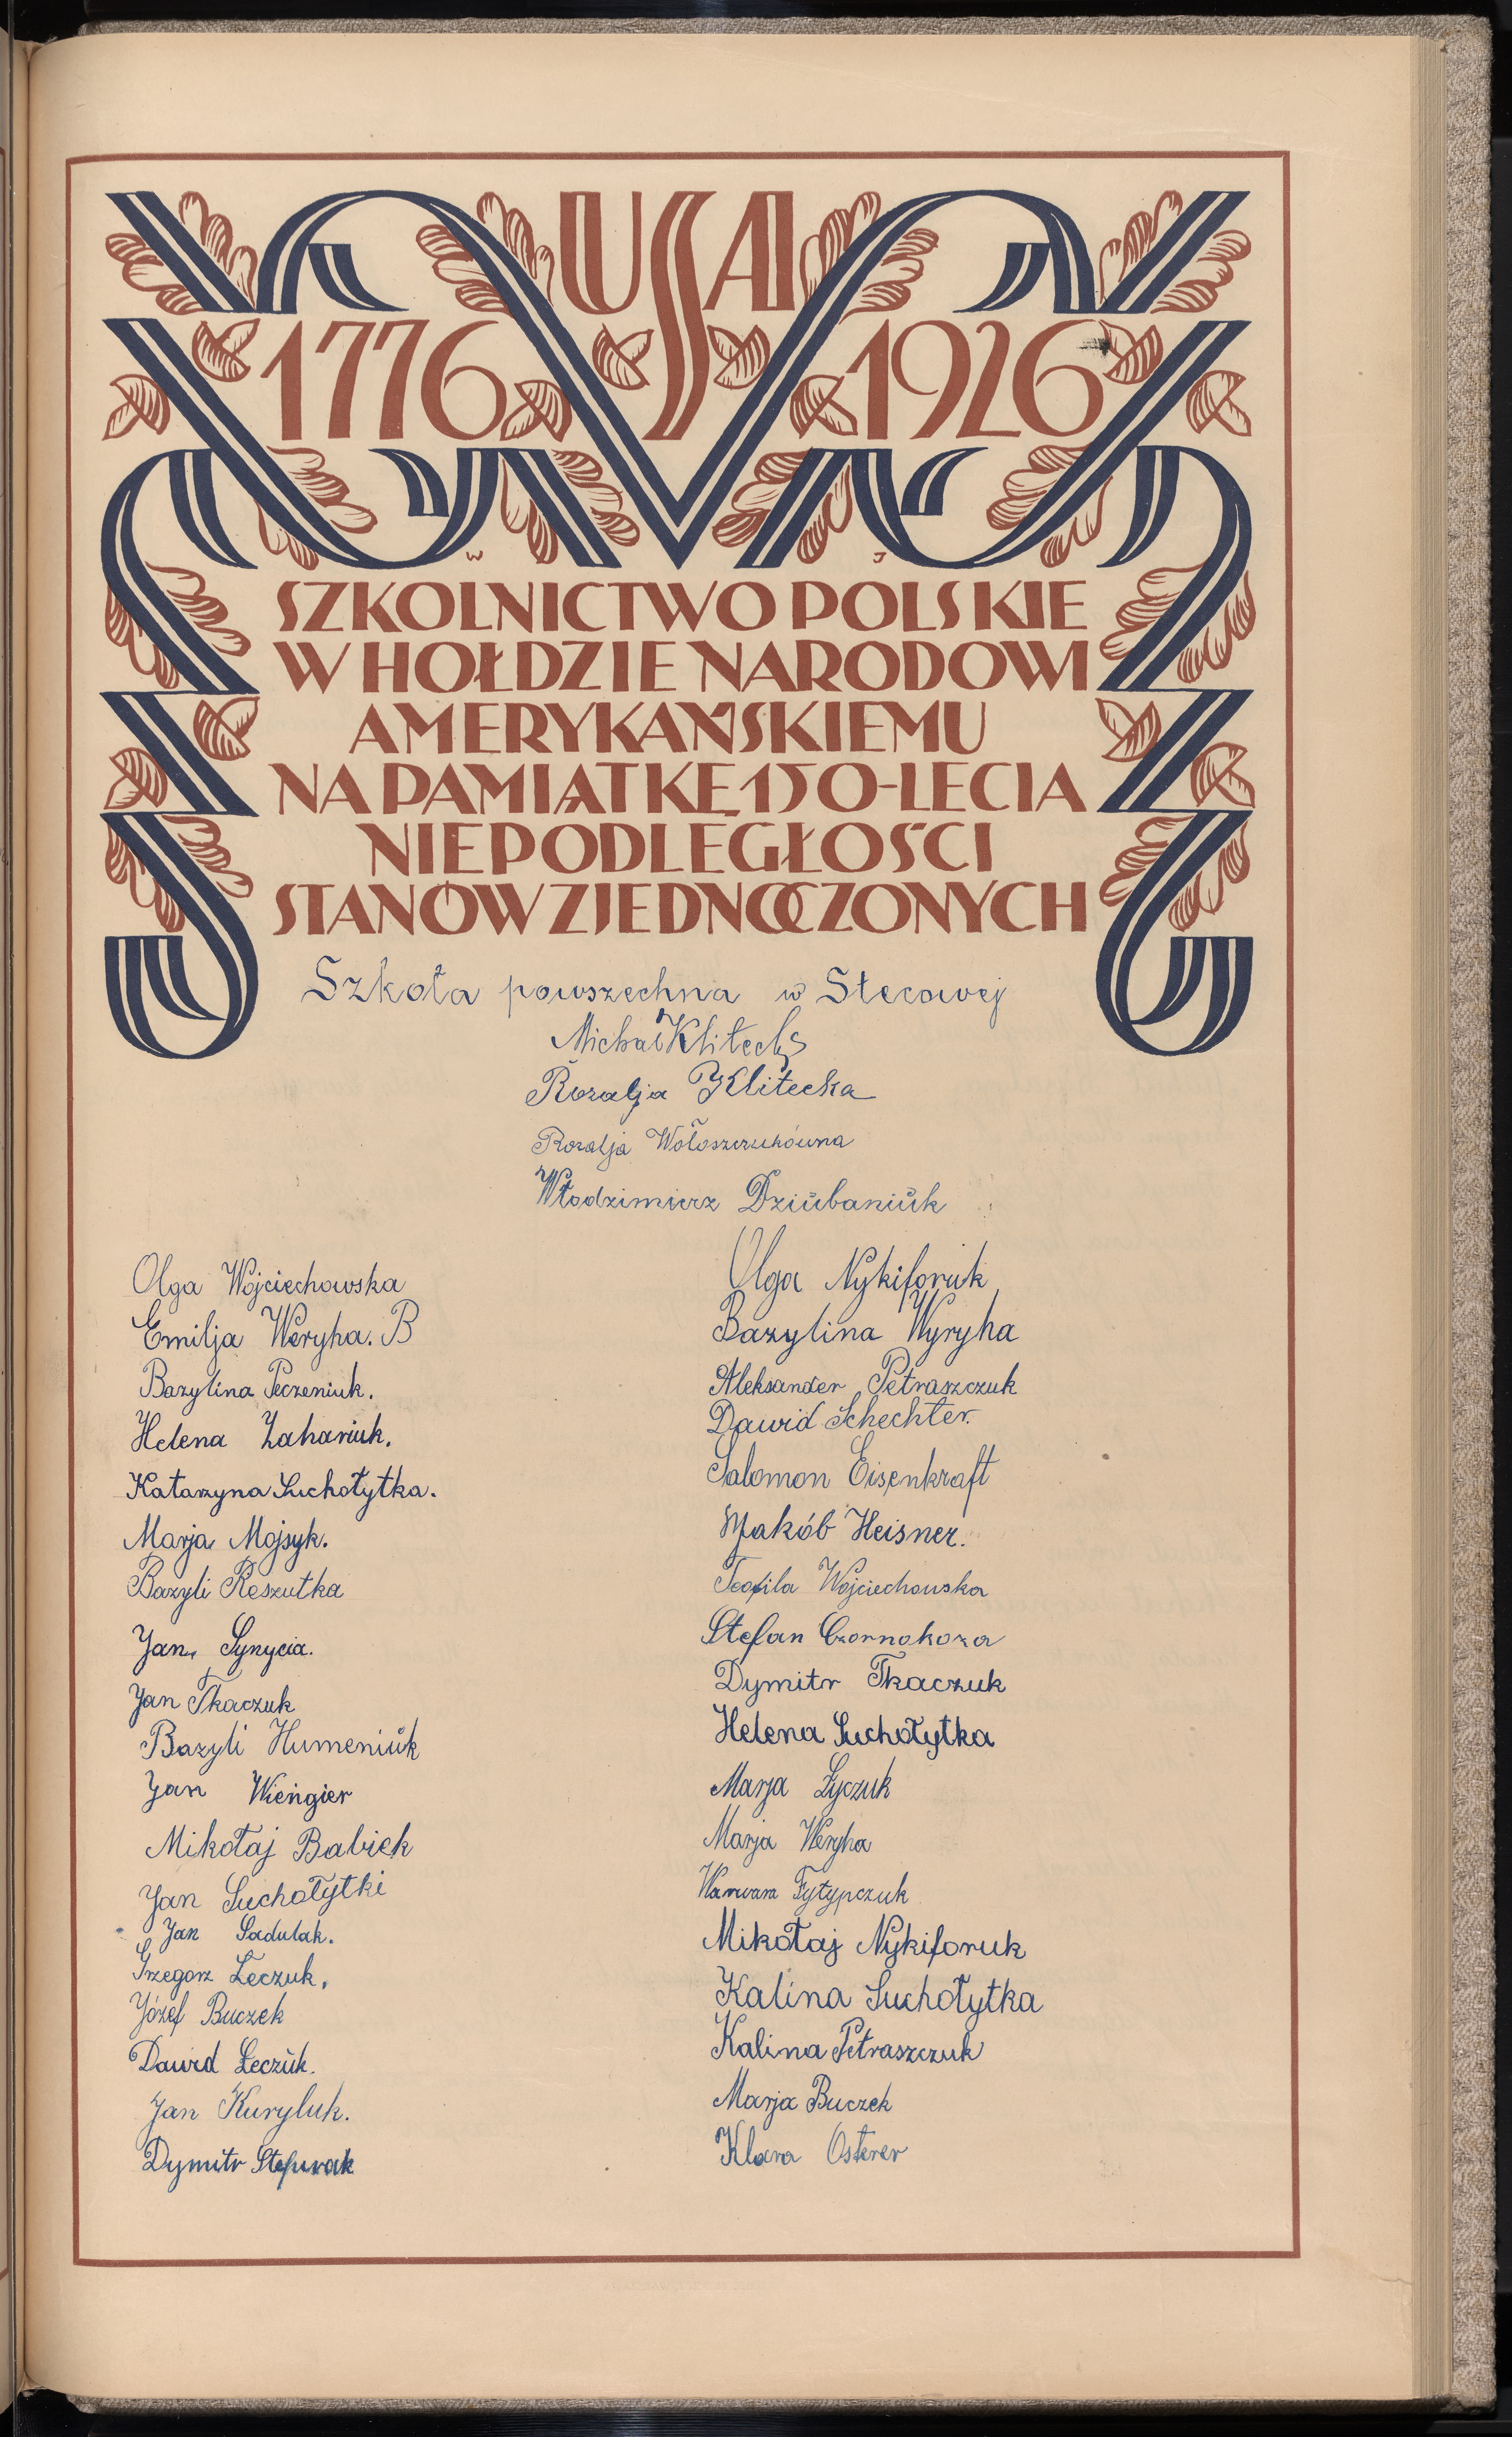 USA
1776 1926
W J
SZKOLNICTWO POLSKIE
W HOŁDZIE NARODOWI
AMERYKAŃSKIEMU
NA PAMIĄTKĘ 150-LECIA
NIEPODLEGŁOŚCI
STANÓW ZJEDNOCZONYCH
Szkoła powszechna w Stecowej
Michał Klitecki
Rozalja Klitecka
Rozalja Wołoszczukówna
Włodzimierz Dziŭbaniŭk
Olga Wojciechowska
Emilja Weryha. B
Bazylina Peczeniuk.
Helena Zahariuk.
Katarzyna Suchołytka.
Marja Mojsyk.
Bazyli Reszutka
Jan Synycia.
Jan Tkaczuk
Bazyli Humeniŭk
Jan Wiengier
Mikołaj Babiek
Jan Suchołytki
Jan Sadulak.
Grzegorz Łeczuk,
Józef Buczek
Dawid Łeczŭk.
Jan Kuryluk.
Dymitr
Olga Nykiforuk
Bazylina Wyryha
Aleksander Petraszczuk
Dawid Schechter.
Salomon Eisenkraft
Jakób Heisner.
Teofila Wojciechowska
Stefan Czornokoza
Dymitr Tkaczuk
Helena Suchołytka
Marja Łyczuk
Marja Weryha
Warwara Fytypczuk
Mikołaj Nykiforuk
Kalina Suchołytka
Kalina Petraszczuk
Marja Buczek
Klara Osterer